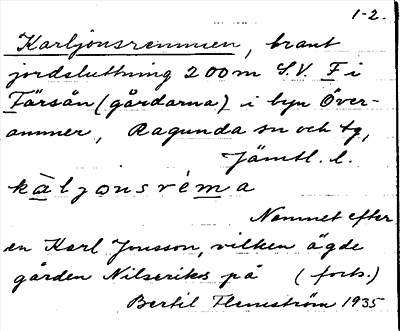 1-2.
Karljonsremmen, brant
jordsluttning 200m S.V. F i
Färsån (gårdarna) i byn Över-
ammer, Ragunda sn och tg,
Jämtl. l.
kàljonsréma
Namnet efter
en Karl Jonsson, vilken ägde
gården Nilseriks på (forts.)
Bertil Flemström 1935